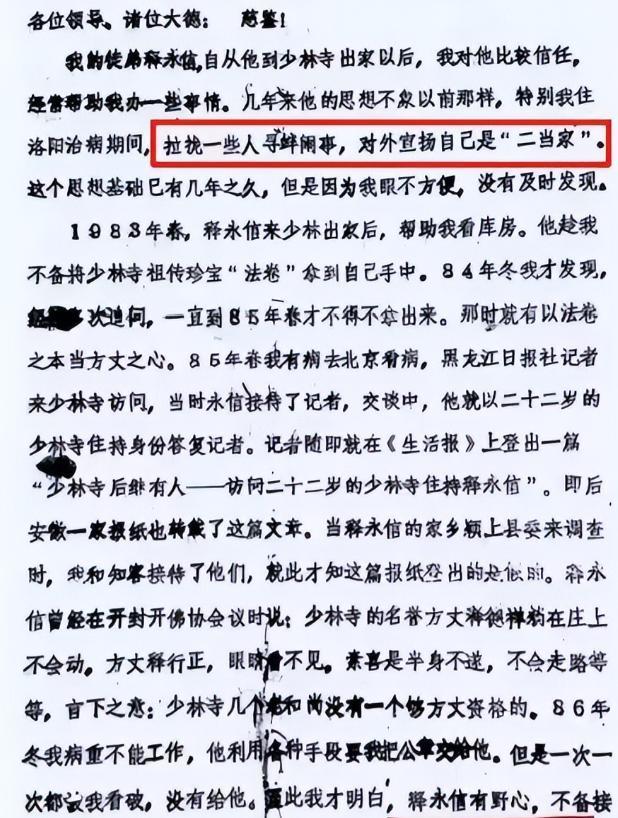 各位领导、诸位大德：　慈鉴！
我的徒弟释永信，自从他到少林寺出家以后，我对他比较信任，
经常帮助我办一些事情。几年来他的思想不象以前那样，特别我住
洛阳治病期间，拉拢一些人寻衅闹事，对外宣扬自己是“二当家”。
这个思想基础已有几年之久，但是因为我眼不方便，没有及时发现。
1983年春，释永信来少林出家后，帮助我看库房。他趁我
不备将少林寺祖传珍宝“法卷”拿到自己手中。84年冬我才发现，
次追问，一直到85年春才不得不拿出来。那时就有以法卷
之本当方丈之心。85年春我有病去北京看病，黑龙江日报社记者
来少林寺访问，当时永信接待了记者，交谈中，他就以二十二岁的
少林寺住持身份答复记者。记者随即就在《生活报》上登出一篇
“少林寺后继有人——访问二十二岁的少林寺住持释永信”。即后
安徽一家报纸也转载了这篇文章。当释永信的家乡颍上县委来调查
时，我和知客接待了他们，就此才知这篇报纸登出的是假的。释永
信曾经在开封开佛协会议时说：少林寺的名誉方丈释德禅躺在庄上
不会动。方丈释行正，眼睛看不见。素喜是半身不遂，不会走路等
等，言下之意：少林寺几个老和尚没有一个够方丈资格的。86年
冬我病重不能工作，他利用各种手段要我把公章交给他。但是一次一
次都被我看破，没有给他。因此我才明白，释永信有野心，不备接